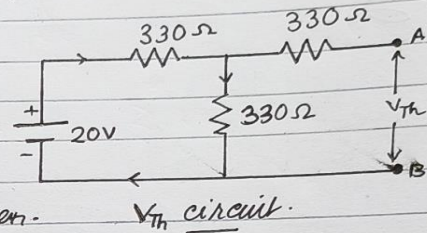 330Ω
330Ω
A
+
20V
-
330Ω
VTh
B
VTh circuit.